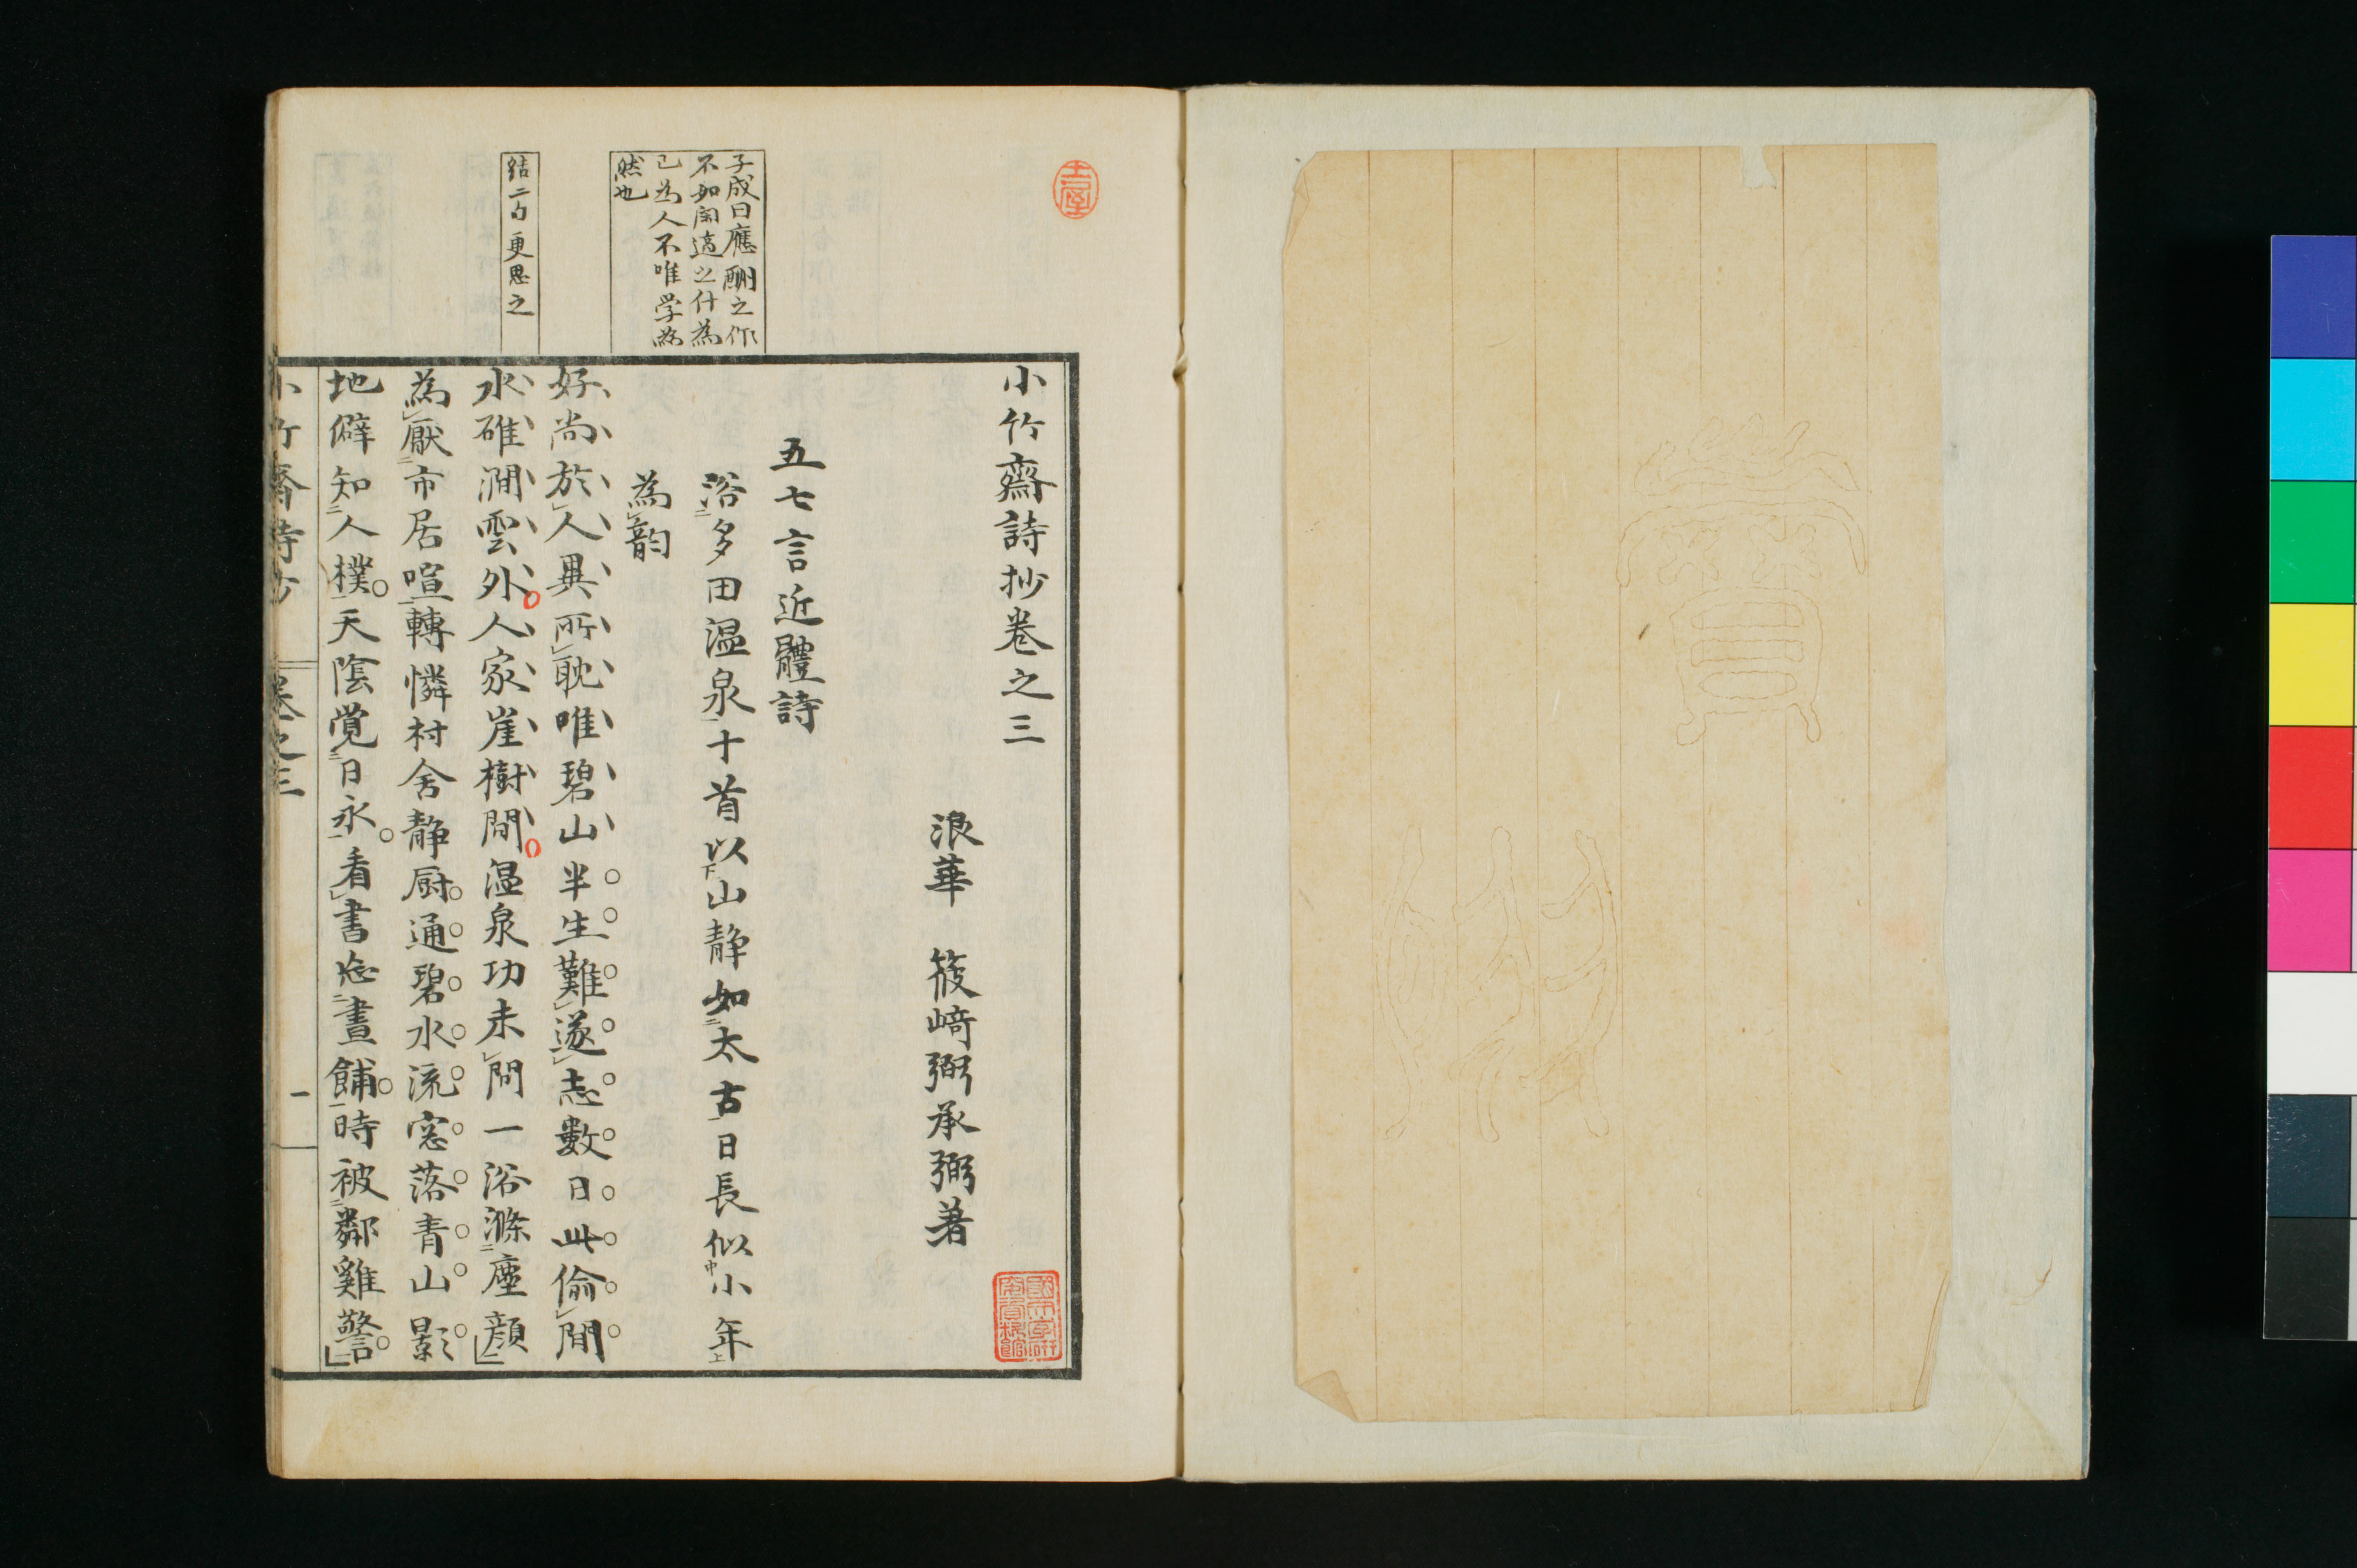 小竹齋詩抄卷之三
浪華 筱﨑弼承弼著
五七言近體詩
浴多田温泉十首以山静如太古日長似小年
為韵
好尚於人異所耽唯碧山半生難遂志數日此偷間
水碓澗雲外人家崖樹間温泉功未問一浴滌塵顔
為厭市居喧轉憐村舎静厨通碧水流窓落青山影
地僻知人樸天陰覚日永看書忘晝餔時被鄰雞警
子成曰應酬之作
不如閑適之什為
己為人不唯学為
然也
結二句更思之
小竹齋詩抄 卷之三 一